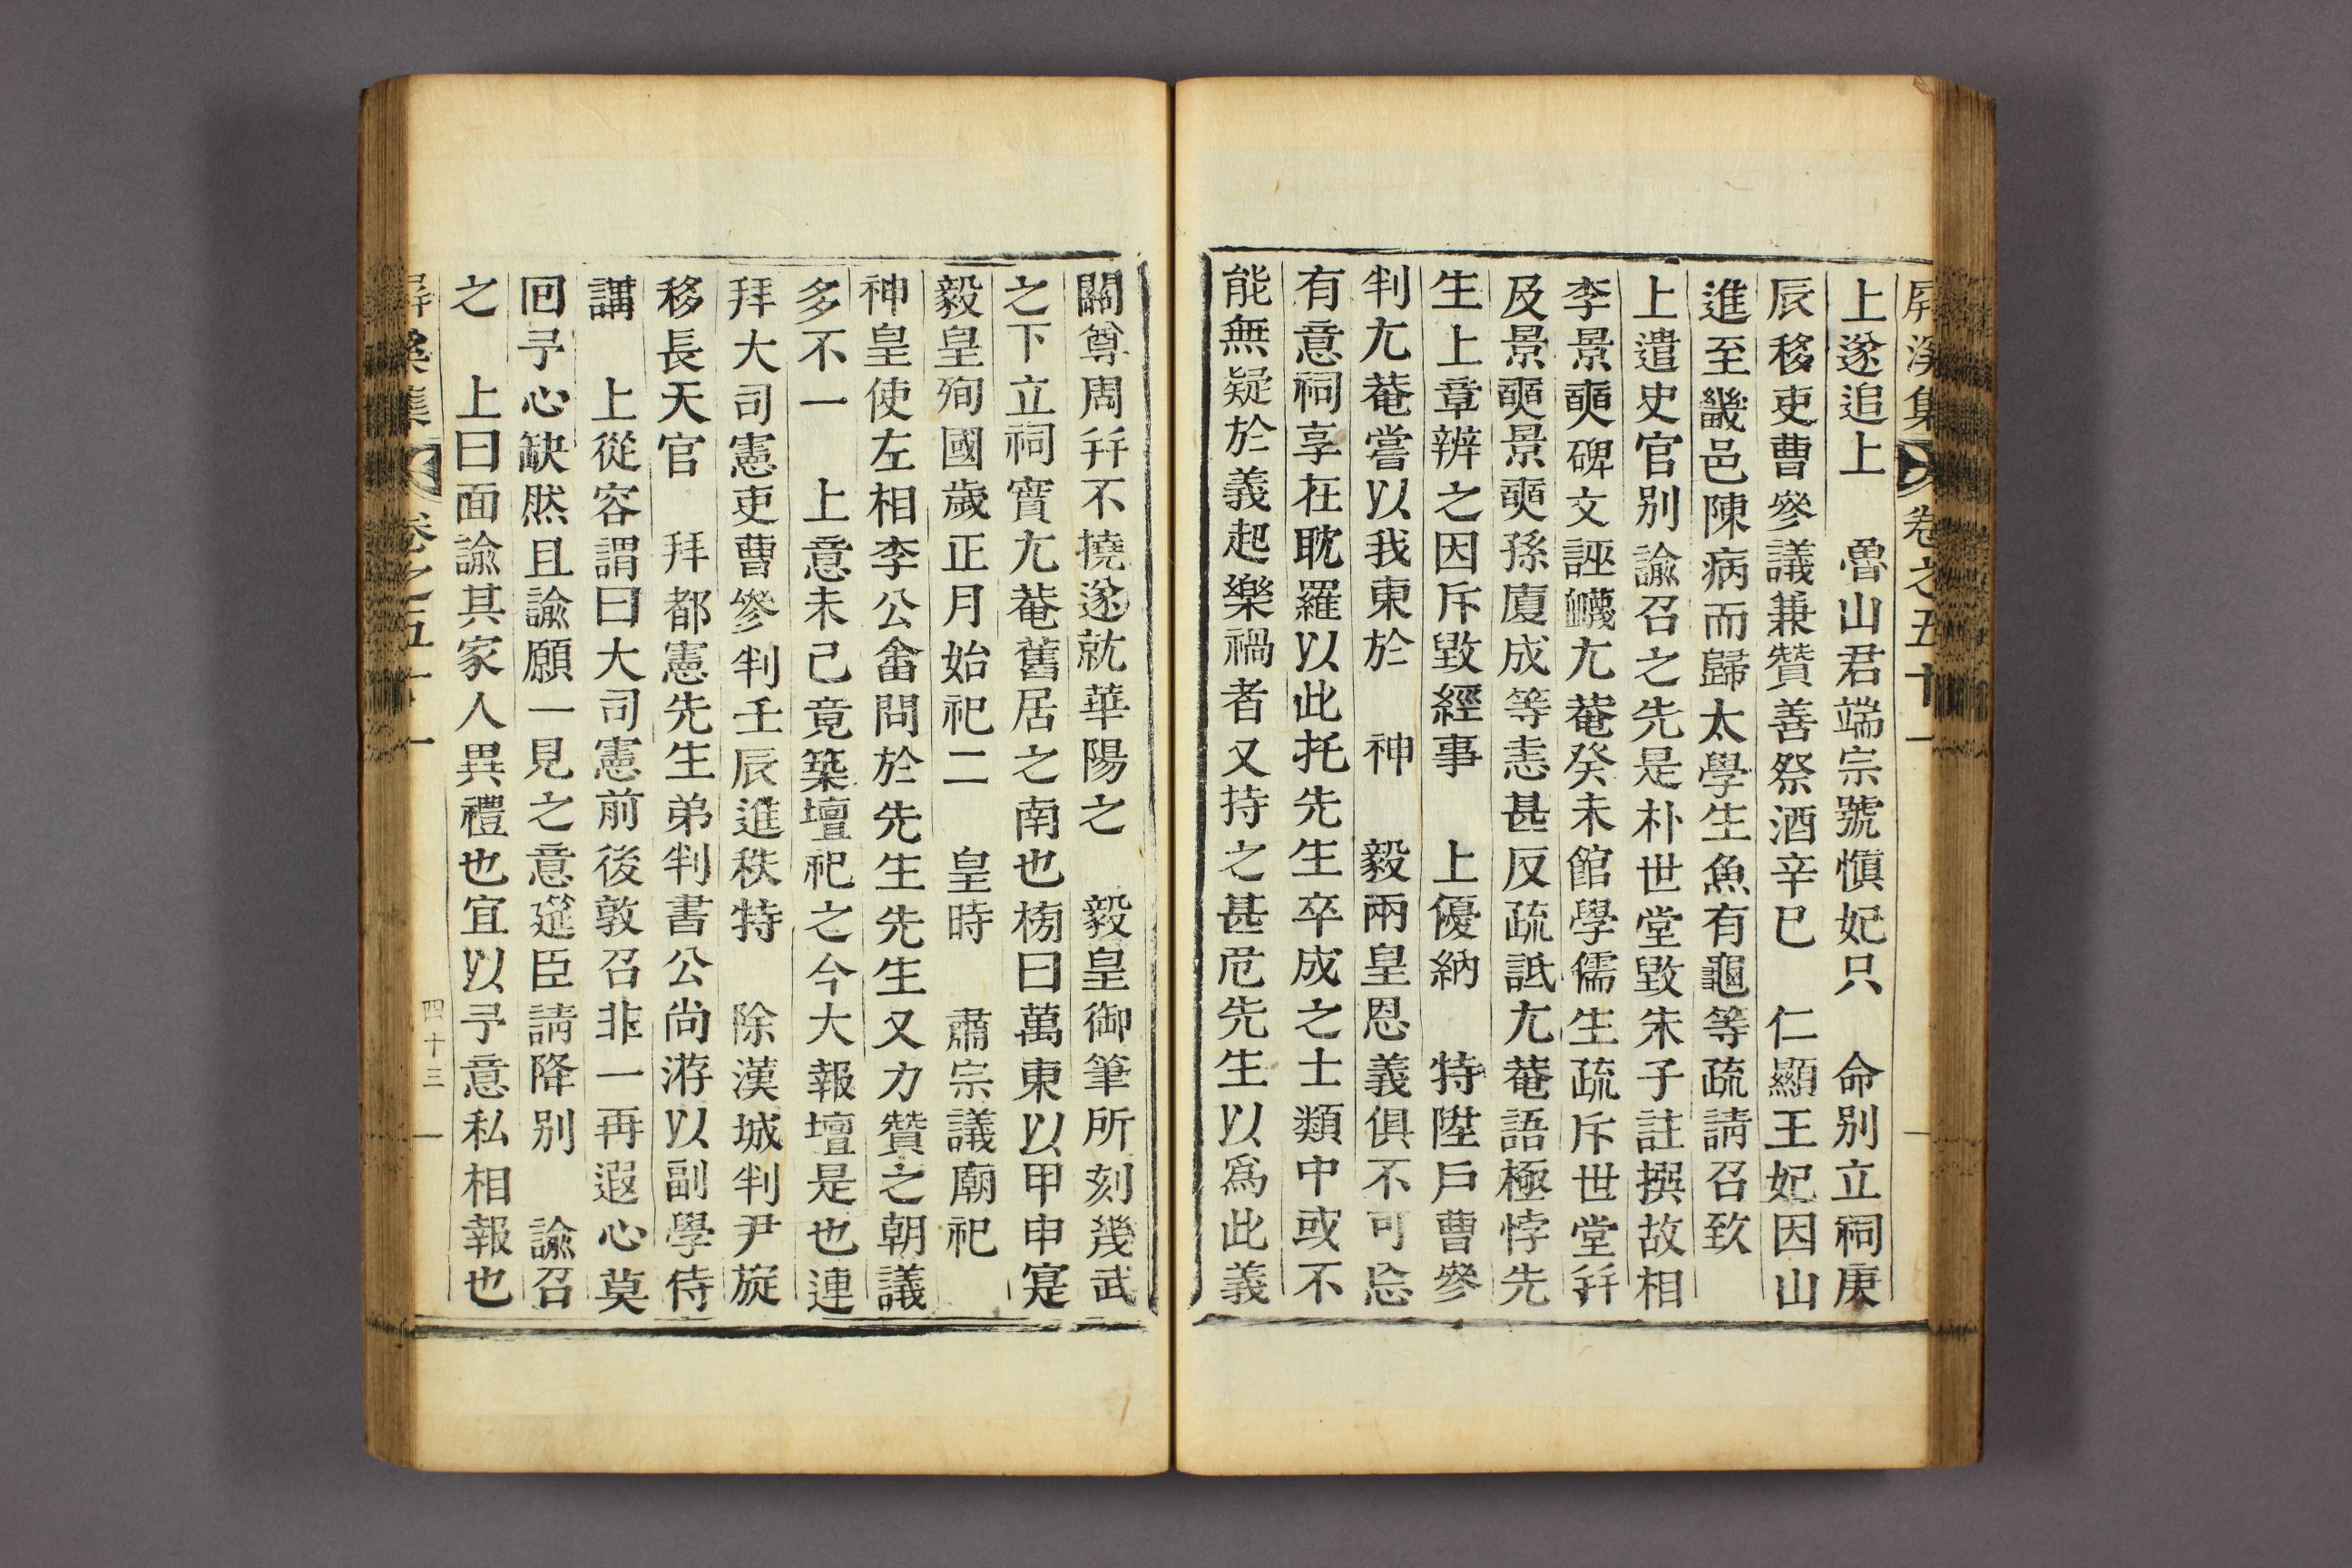 屛溪集
卷之五十一
上遂追上 魯山君端宗號愼妃只 命別立祠庚
辰移吏曹參議兼贊善祭酒辛巳 仁顯王妃因山
進至畿邑陳病而歸太學生魚有龜等疏請召致
上遣史官別諭召之先是朴世堂毀朱子註撰故相
李景奭碑文誣衊尤菴癸未館學儒生疏斥世堂幷
及景奭景奭孫廈成等恚甚反疏詆尤菴語極悖先
生上章辨之因斥毀經事 上優納 特陞戶曹參
判尤菴嘗以我東於 神 毅兩皇恩義俱不可忘
有意祠享在耽羅以此托先生卒成之士類中或不
能無疑於義起樂禍者又持之甚危先生以爲此義
關尊周幷不撓遂就華陽之 毅皇御筆所刻幾武
之下立祠實尤菴舊居之南也榜曰萬東以甲申寔
毅皇殉國歲正月始祀二 皇時 肅宗議廟祀
神皇使左相李公畬問於先生先生又力贊之朝議
多不一 上意未已竟築壇祀之今大報壇是也連
拜大司憲吏曹參判壬辰進秩特 除漢城判尹旋
移長天官 拜都憲先生弟判書公尙游以副學侍
講 上從容謂曰大司憲前後敦召非一再遐心莫
回予心缺然且諭願一見之意筵臣請降別 諭召
之 上曰面諭其家人異禮也宜以予意私相報也
卷之五十一
四十三